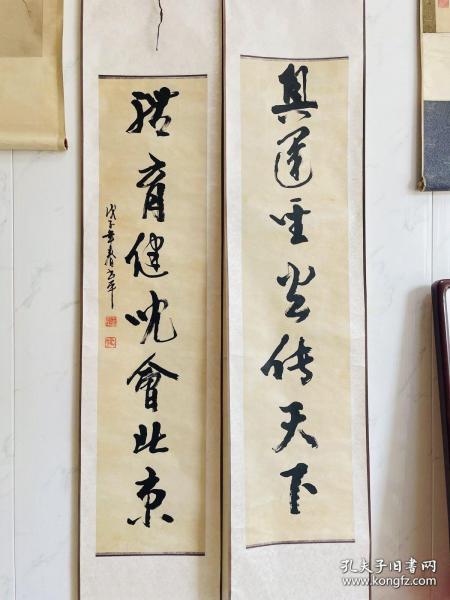 奥運聖火传天下
體育健兒會北京
戊子年春
孔夫子旧书网
www.kongfz.com